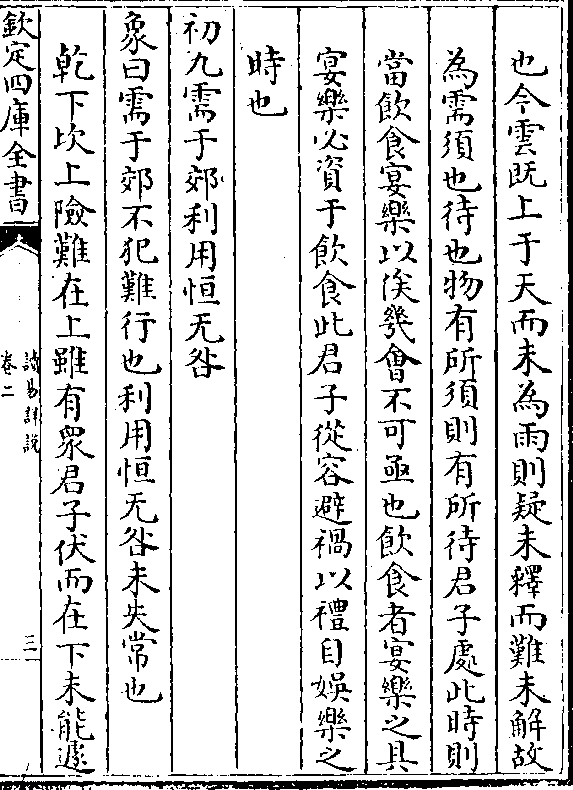 也今雲旣上于天而未為雨則疑未釋而難未解故
為需須也待也物有所須則有所待君子處此時則
當飲食宴樂以俟幾會不可亟也飲食者宴樂之具
宴樂必資于飲食此君子從容避禍以禮自娛樂之
時也
初九需于郊利用恒无咎
象曰需于郊不犯難行也利用恒无咎未失常也
乾下坎上險難在上雖有衆君子伏而在下未能遽
欽定四庫全書
讀易詳說
卷二
三